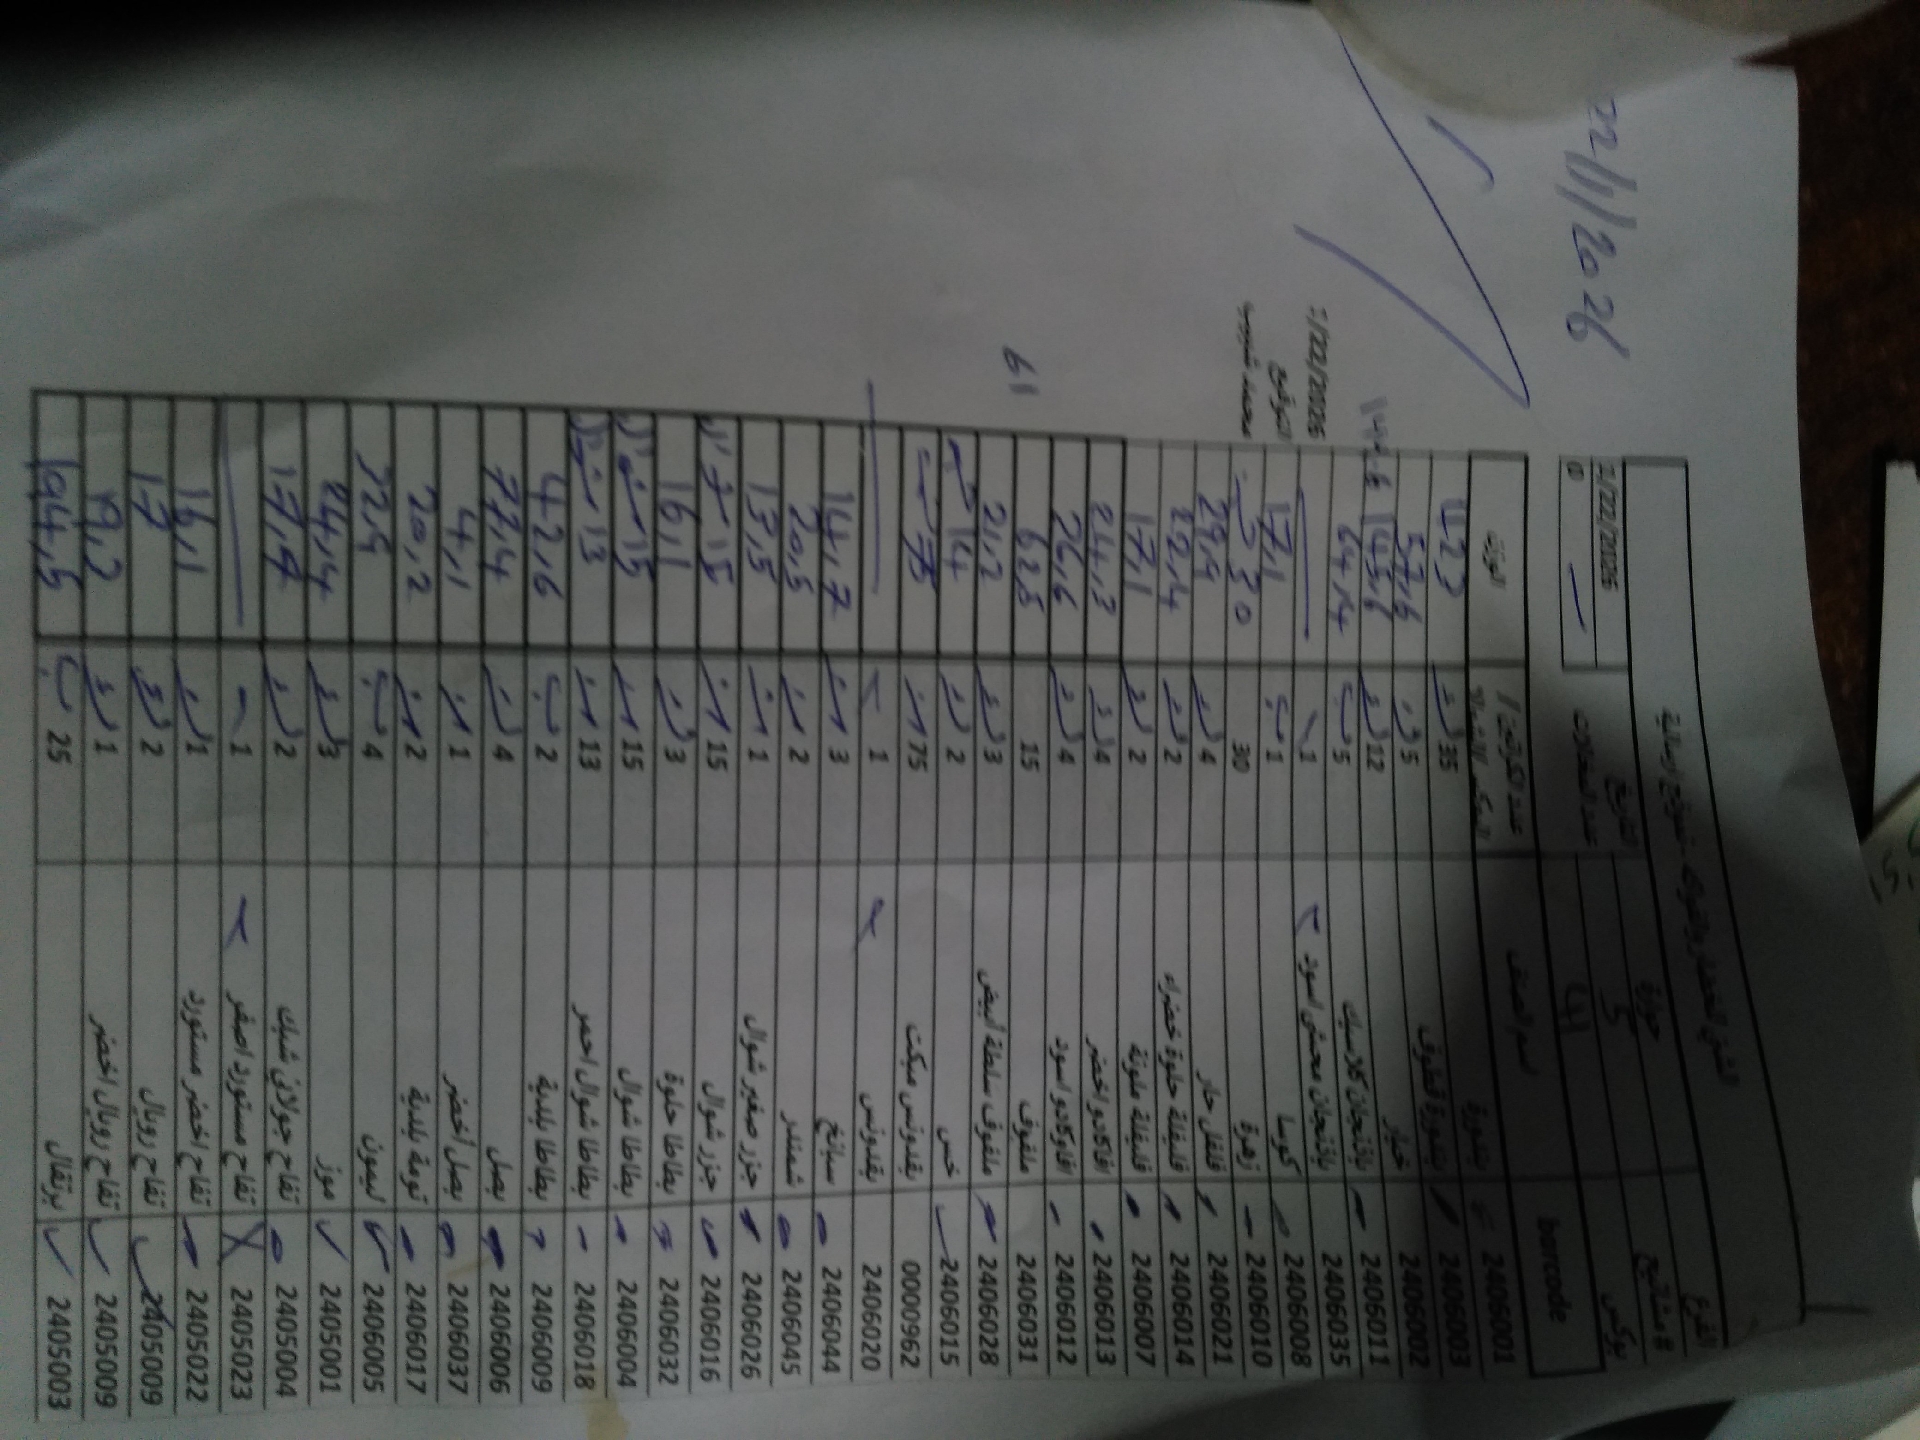 22/1/2026
الشني لتجارة الخضار والفواكه - نموذج ارسالية
الفرع حوارة التاريخ 1/22/2026
# مشاتيح 5
بوكس 41 عدد المشالات 0
barcode اسم الصنف عدد الكراتين // البكس // الشوال الوزن
2406001 بندورة 35 423
2406003 بندورة قطوف 5 57,6
2406002 خيار 12 145,6
2406011 باذنجان كلاسيك 5 64,4
2406035 باذنجان محشي اسود 1
2406008 كوسا 1 17,1
2406010 زهرة 30 30
2406021 فلفل حار 4 29,9
2406014 فليفلة حلوة خضراء 2 22,4
2406007 فليفلة ملونة 2 17,1
2406013 افاكادو اخضر 4 24,3
2406012 افاوكادو اسود 4 26,6
2406031 ملفوف 15 62,5 19
2406028 ملفوف سلطة أبيض 3 21,2
2406015 خس 2 14
0000962 بقدونس مبكت 75 75
2406020 بقدونس 1
2406044 سبانخ 3 14,7
2406045 شمندر 2 20,5
2406026 جزر صغير شوال 1 13,5
2406016 جزر شوال 15 15 شوال
2406032 بطاطا حلوة 3 16,1
2406004 بطاطا شوال 15 15 شوال
2406018 بطاطا شوال احمر 13 13 شوال
2406009 بطاطا بلدية 2 42,6
2406006 بصل 4 77,4
2406037 بصل أخضر 1 4,1
2406017 تومة بلدية 2 20,2
2406005 ليمون 4 32,9
2405001 موز 3 84,4
2405004 تفاح جولاني شبك 2 17,7
2405023 تفاح مستورد اصفر 1
2405022 تفاح اخضر مستورد 1 16,1
2405009 تفاح رويال 2 17
2405009 تفاح رويال اخضر 1 9,2
2405003 برتقال 25 194,5
1/22/2026
التوقيع